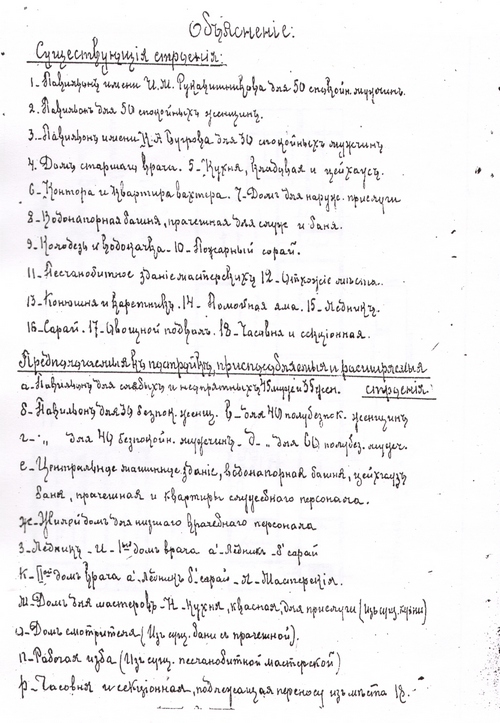 Объясненіе:
Существующія строенія:
1- Павильонъ имени И.М. Рукавишникова для 50 спокойн. мужчинъ.
2. Павильонъ для 50 спокойныхъ женщинъ.
3- Павильонъ имени Н.А Бугрова для 30 спокойныхъ мужчинъ
4. Домъ старшаго врача. 5- Кухня, кладовая и цейхаузъ.
6- Контора и квартира вахтера. 7- Домъ для наружн. прислуги
8- Водонапорная башня, прачешная для служ и баня.
9- Колодезь и водокачка. 10- Пожарный сарай.
11- Песчанобитное зданіе мастерскихъ 12- Отхожіе мѣста.
13- Конюшня и каретникъ. 14- Помойная яма. 15- Ледникъ.
16- Сарай. 17- Овощной подвалъ. 18- Часовня и секціонная.
Предполагаемыя къ постройкѣ, приспособляемыя и расширяемыя
строенія:
а- Павильонъ для слабыхъ и неопрятныхъ 45 мужч и 35 жен.
б- Павильонъ для 30 безпок. женщ. в- для 40 полубезпок. женщинъ
г- „ для 40 безпокойн. мужчинъ- д- „ для 60 полубез. мужч.
е- Центральное машинное зданіе, водонапорная башня, цейхаузъ
баня, прачешная и квартиры служебнаго персонала.
ж- Жилой домъ для низшаго врачебнаго персонала
з- Ледникъ- и- Iый домъ врача а'- Ледникъ б'- сарай
к- IIой домъ врача а'- Ледникъ б'- сарай- л- Мастерскія.
м- Домъ для мастеровъ- н- кухня, квасная, для прислуги (Изъ сущ. кухни)
о- Домъ смотрителя (Изъ сущ. бани съ прачешной).
п- Рабочая изба (Изъ сущ. песчанобитной мастерской)
р- Часовня и секціонная, подлежащая переносу изъ мѣста 18.